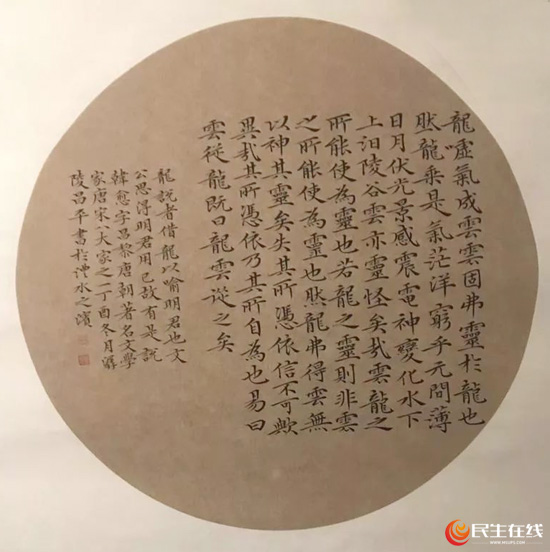 龍噓氣成雲雲固弗靈於龍也
然龍乘是氣茫洋窮乎元間薄
日月伏光景感震電神變化水下
上汩陵谷雲亦靈怪矣哉雲龍之
所能使為靈也若龍之靈則非雲
之所能使為靈也然龍弗得雲無
以神其靈矣失其所憑依信不可歟
異哉其所憑依乃其所自為也易曰
雲從龍既曰龍雲從之矣
龍說者借龍以喻明君也文
公思得明君用己故有是說
韓愈字昌黎唐朝著名文學
家唐宋八大家之一丁酉冬月
陵昌平書於澧水之濱
民生在线